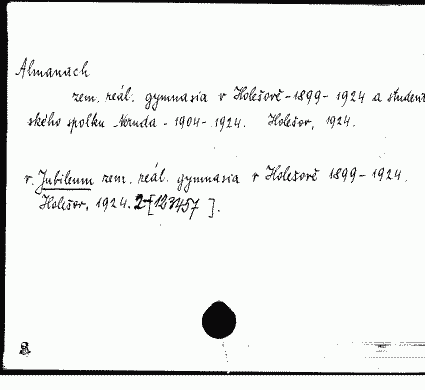 Almanach
zem. reál. gymnasia v Holešově - 1899 - 1924 a student
ského spolku Neruda - 1904 - 1924. Holešov, 1924.
v. Jubileum zem. reál. gymnasia v Holešově 1899 - 1924.
Holešov, 1924. 2-[123457].